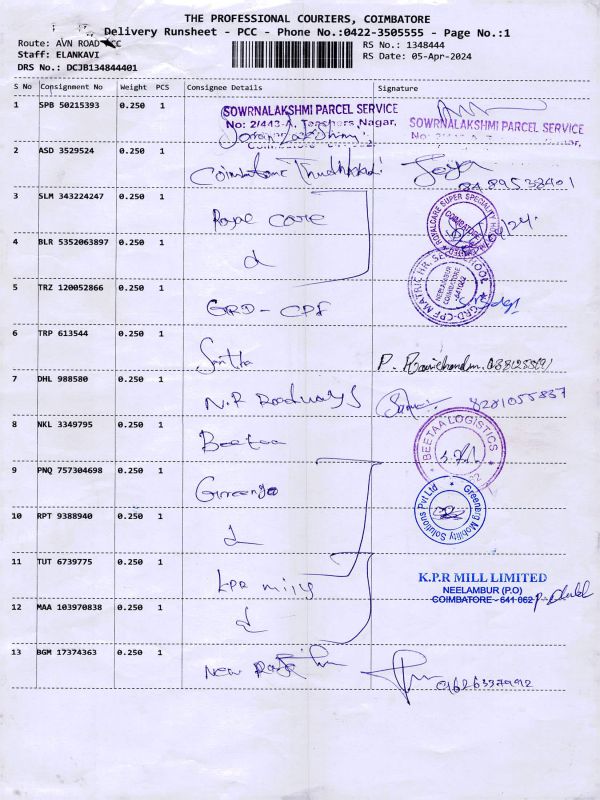 THE PROFESSIONAL COURIERS, COIMBATORE
Delivery Runsheet - PCC - Phone No.:0422-3505555 - Page No.:1
Route: AVN ROAD
Staff: ELANKAVI
DRS No.: DCJB134844401
RS No.: 1348444
RS Date: 05-Apr-2024
S No Consignment No Weight PCS Consignee Details Signature
1 SPB 50215393 0.250 1
SOWRNALAKSHMI PARCEL SERVICE
No: 2/443-A, Nagar,
SOWRNALAKSHMI PARCEL SERVICE
2 ASD 3529524 0.250 1 Coimbatore
3 SLM 343224247 0.250 1 Royal Care
4 BLR 5352063897 0.250 1
COIMBATORE
5 TRZ 120052866 0.250 1 GRD-CPF
GRD-CPF MATRIC HR. SEC. SCHOOL
NEELAMBUR
COIMBATORE
6 TRP 613544 0.250 1 P.
7 DHL 988580 0.250 1 N.R Roadways 8281055837
8 NKL 3349795 0.250 1 Beetaa
BEETAA LOGISTICS
9 PNQ 757304698 0.250 1
Greenerg Mobility Solutions Pvt Ltd
10 RPT 9388940 0.250 1
11 TUT 6739775 0.250 1 kpr mills
K.P.R MILL LIMITED
NEELAMBUR (P.O)
COIMBATORE - 641 062
12 MAA 103970838 0.250 1
13 BGM 17374363 0.250 1 New